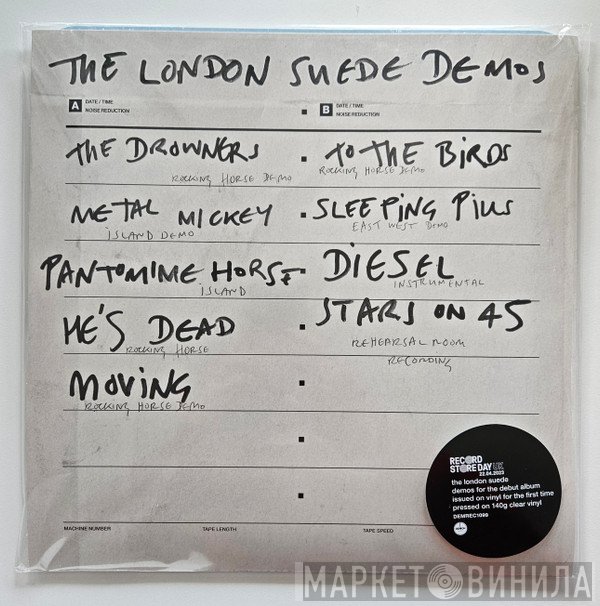 THE LONDON SUEDE DEMOS
A DATE / TIME
NOISE REDUCTION
B DATE / TIME
NOISE REDUCTION
THE DROWNERS
ROCKING HORSE DEMO
METAL MICKEY
ISLAND DEMO
PANTOMIME HORSE
ISLAND
HE'S DEAD
ROCKING HORSE
MOVING
ROCKING HORSE DEMO
TO THE BIRDS
ROCKING HORSE DEMO
SLEEPING PILLS
EAST WEST DEMO
DIESEL
INSTRUMENTAL
STARS ON 45
REHEARSAL ROOM
RECORDING
RECORD
STORE DAY UK
22.04.2023
the london suede
demos for the debut album
issued on vinyl for the first time
pressed on 140g clear vinyl
DEMREC1096
MACHINE NUMBER
TAPE LENGTH
TAPE SPEED
МАРКЕТ ВИНИЛА